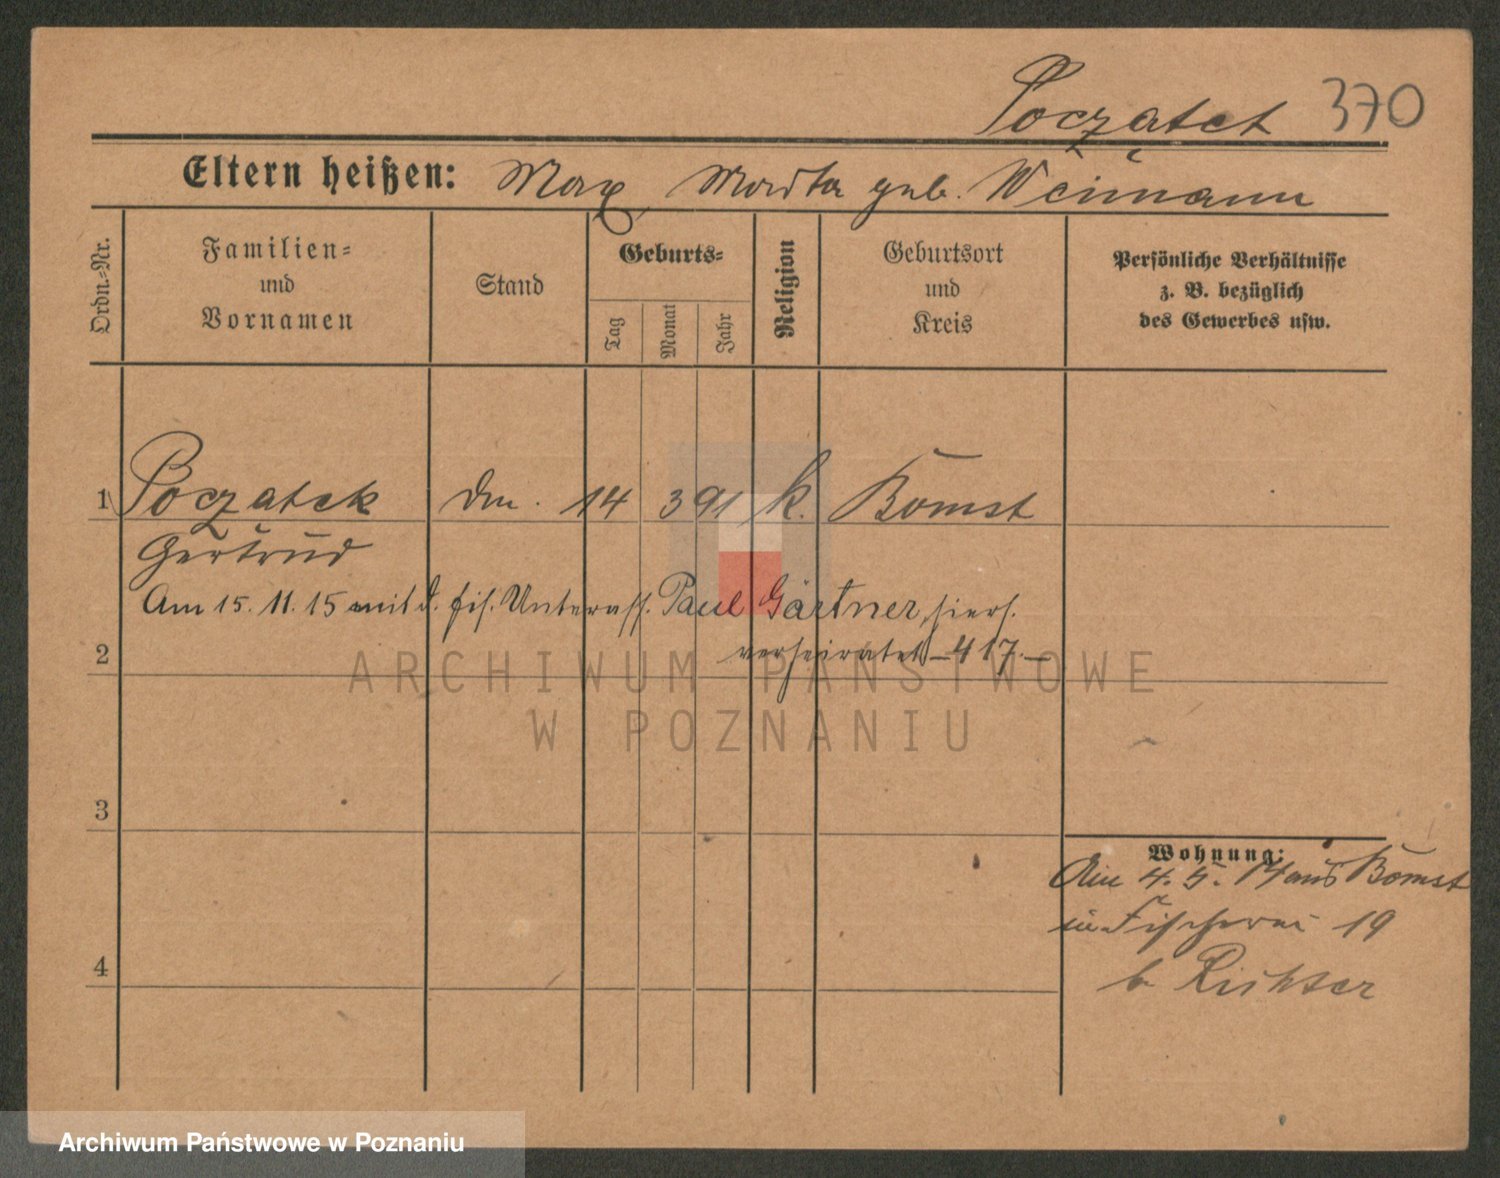 Poczatek 370
Eltern heißen: Max, Martha geb. Weimann
Ordn.-Nr.
Familien-
und
Vornamen
Stand
Geburts-
Tag
Monat
Jahr
Religion
Geburtsort
und
Kreis
Persönliche Verhältnisse
z. B. bezüglich
des Gewerbes usw.
1 Poczatek 14 3 91 k. Bomst
Gertrud
Am 15. 11. 15 mit d. Paul Gärtner, hiers.
2 verheiratet – 417. –
ARCHIWUM PAŃSTWOWE
W POZNANIU
3
Wohnung:
4. 5. 14 aus Bomst
Fischerei 19
4 b. Richter
Archiwum Państwowe w Poznaniu